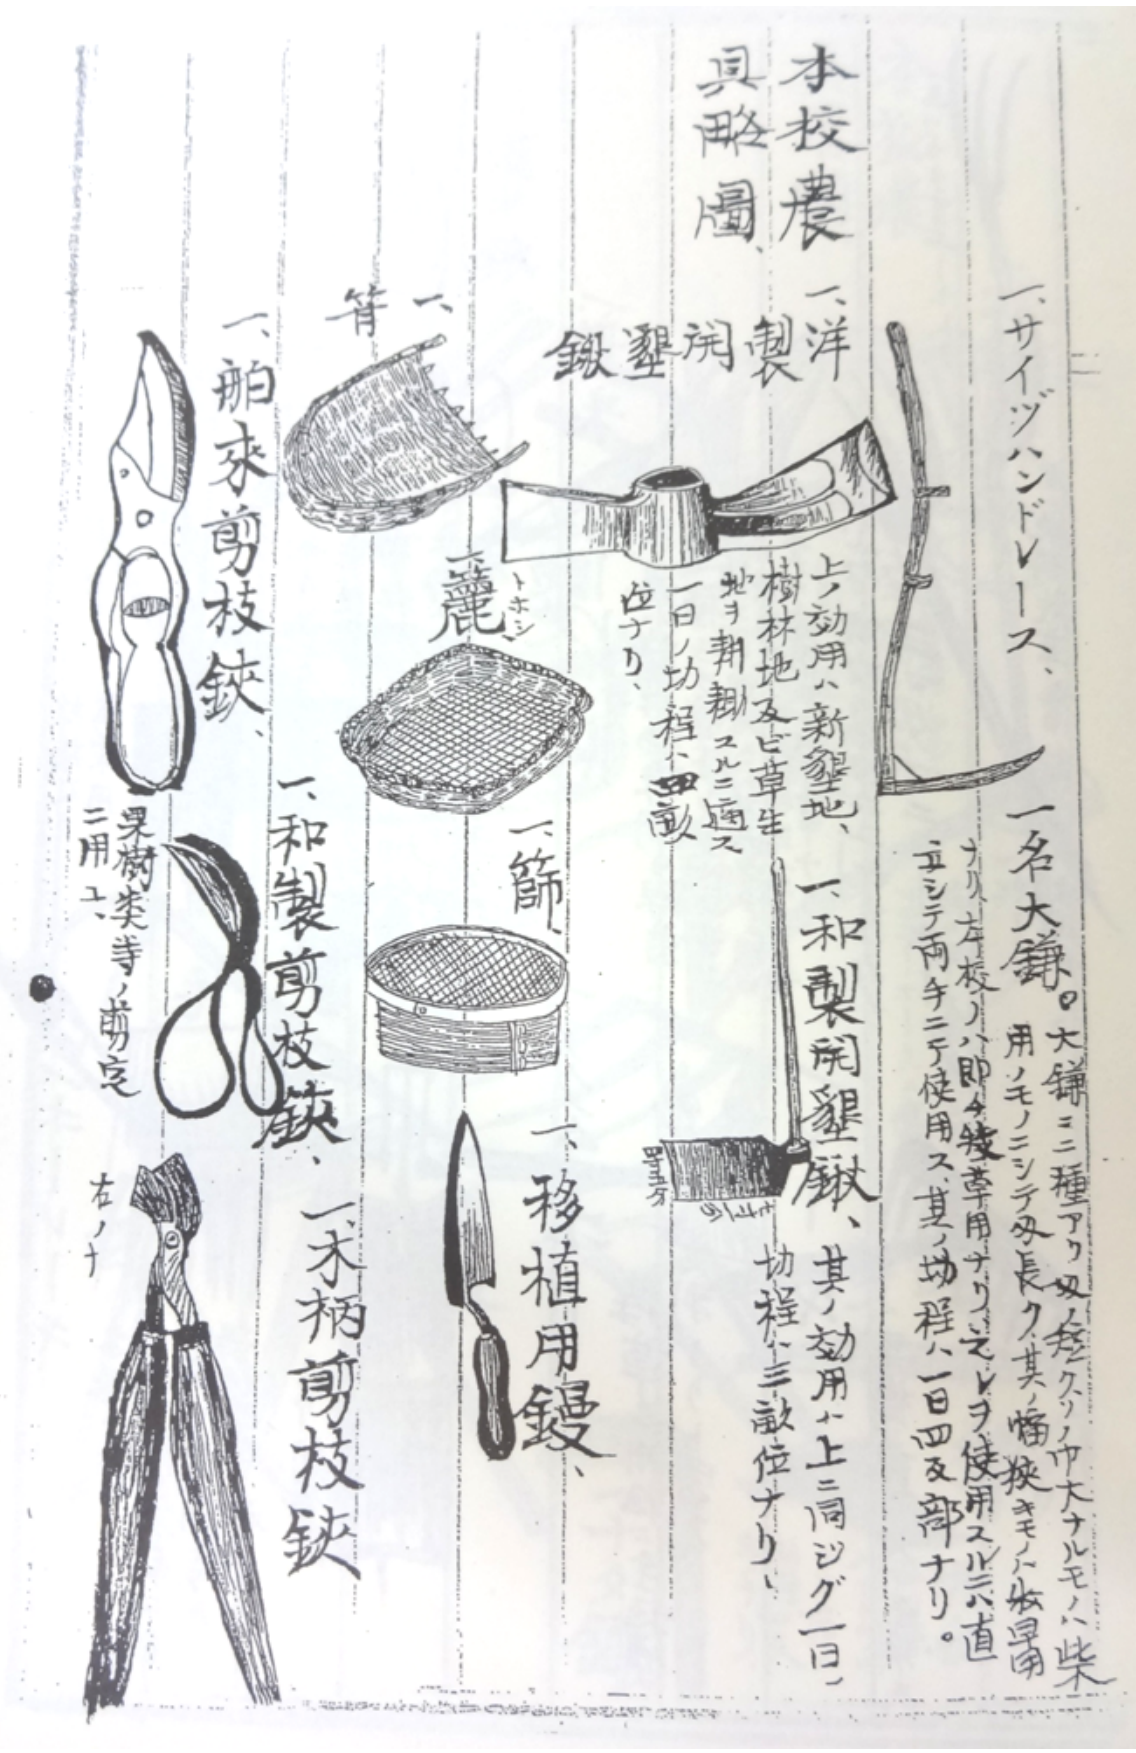 本校農
具略圖、
一、サイヅハンドレース、
一名大鎌。
大鎌ニ二種アリ刄ノ短クソノ巾大ナルモノハ柴
用ノモノニシテ刄長ク其ノ幅狹キモノハ牧草用
ナリ、左校ノハ即チ牧草用ナリ、之レヲ使用スルニハ直
立シテ両手ニテ使用ス、其ノ功程ハ一日四反部ナリ。
一、洋
製
開
墾
鍬
上ノ効用ハ新墾地、
樹林地及ビ草生
地ヲ耕耡スルニ適ス
一日ノ功程ハ四畝
位ナリ、
一、和製開墾鍬、
其ノ効用ハ上ニ同ジグ一日ノ
功程ハ三畝位ナリ、
一、
箕
一、簏
トホシ
一、篩、
一、移植用鏝、
一、舶来剪枝鋏、
一、和製剪枝鋏、
果樹類等ノ剪定
ニ用ユ、
一、木柄剪枝鋏
右ノナ